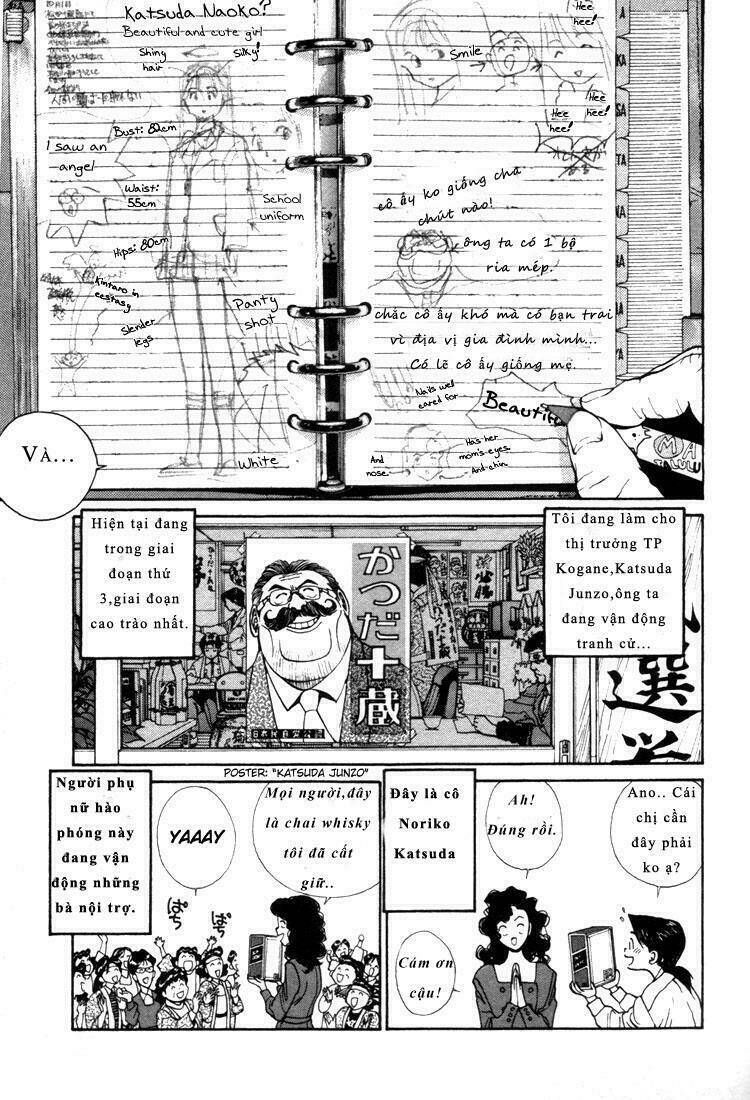 Katsuda Naoko?
Beautiful and cute girl
Shiny
hair
Silky!
Bust: 82cm
I saw an
angel
Waist:
55cm
School
uniform
Hips: 80cm
Kintaro in
ecstasy
Slender
legs
Panty
shot
White
Smile
Hee
hee!
Hee
hee!
Hee
hee!
A
KA
SA
TA
NA
cô ấy ko giống cha
chút nào!
ông ta có 1 bộ
ria mép.
chắc cô ấy khó mà có bạn trai
vì địa vị gia đình mình...
Có lẽ cô ấy giống mẹ.
Nails well
cared for
Beautiful
And
nose.
Has her
mom's eyes.
And chin.
Và...
Hiện tại đang
trong giai
đoạn thứ
3,giai đoạn
cao trào nhất.
Tôi đang làm cho
thị trưởng TP
Kogane,Katsuda
Junzo,ông ta
đang vận động
tranh cử...
かつだ十蔵
選挙
POSTER: "KATSUDA JUNZO"
Ano.. Cái
chị cần
đây phải
ko ạ?
Ah!
Đúng rồi.
Đây là cô
Noriko
Katsuda
Cám ơn
cậu!
Mọi người,đây
là chai whisky
tôi đã cất
giữ..
YAAAY
Người phụ
nữ hào
phóng này
đang vận
động những
bà nội trợ.
ぱち
ぱち